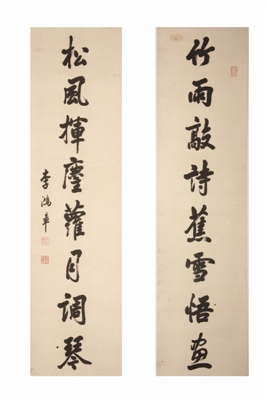 竹雨敲詩蕉雪悟畫
松風揮麈蘿月調琴
李鴻章